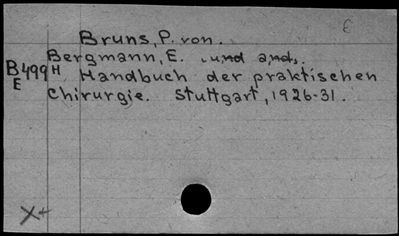 Bruns, P. von.
Bergmann, E. und and.
B499H Handbuch der praktischen
E Chirurgie. Stuttgart, 1926-31.